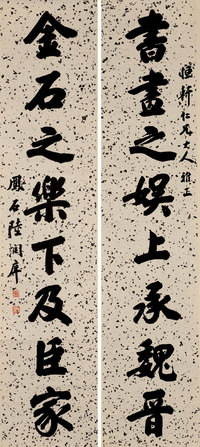 愷軒仁兄大人雅正
書畫之娛上承魏晉
金石之樂下及臣家
鳳石陸潤庠